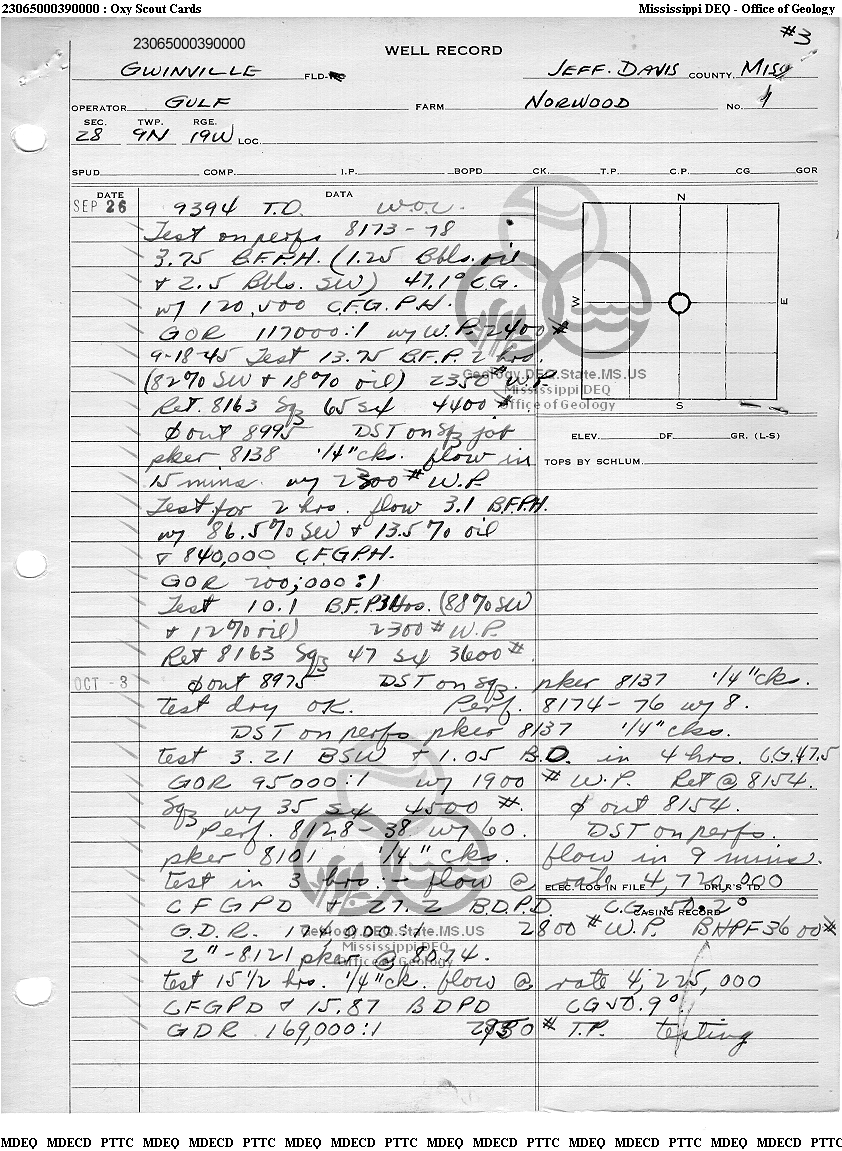 23065000390000 : Oxy Scout Cards Mississippi DEQ - Office of Geology
#3
23065000390000
WELL RECORD
GWINVILLE FLD. JEFF. DAVIS COUNTY, MISS
OPERATOR GULF FARM NORWOOD NO. 1
SEC. TWP. RGE.
28 9N 19W LOC.
SPUD COMP. I.P. BOPD CK. T.P. C.P. CG GOR
DATE DATA
SEP 26 9394 T.D. W.O.C.
Test on perfs 8173-78
3.75 B.F.P.H. (1.25 Bbls. oil
+ 2.5 Bbls. SW) 47.1° C.G.
w/ 120,500 C.F.G.P.H.
GOR 117000:1 w/ W.P. 2400 #
9-18-45 Test 13.75 B.F.P. 2 hrs.
(82% SW + 18% oil) 2350 # W.P.
Ret. 8163 Sqz 65 sx 4400 #
Ø out 8995 DST on sqz job
pker 8138 1/4" cks. flow in
15 mins. w/ 2300 # W.P.
Test for 2 hrs. flow 3.1 B.F.P.H.
w/ 86.5% SW + 13.5% oil
+ 840,000 C.F.G.P.H.
GOR 200,000:1
Test 10.1 B.F.P. 3 Hrs. (88% SW
+ 12% oil) 2300 # W.P.
Ret 8163 Sqz 47 sx 3600 #.
OCT - 3 Ø out 8975 DST on sqz. pker 8137 1/4" cks.
test dry OK. Perf. 8174-76 w/ 8.
DST on perfs pker 8137 1/4" cks.
test 3.21 BSW + 1.05 B.D. in 4 hrs. C.G. 47.5
GOR 95000:1 w/ 1900 # W.P. Ret @ 8154.
Sqz w/ 35 sx 4500 #. Ø out 8154.
Perf. 8128-38 w/ 60. DST on perfs.
pker 8101 1/4" cks. flow in 9 mins.
test in 3 hrs:- flow @ rate 4,720,000
CFGPD + 27.2 B.D.P.D. C.G. 50.2°
G.D.R. 174,000:1 2800 # W.P. BHPF 3600 #
2"-8121 pker @ 8074.
test 15 1/2 hrs. 1/4" ck. flow @ rate 4,225,000
CFGPD + 15.87 BDPD CG 50.9°
GDR 169,000:1 # T.P. testing
N
W E
S
ELEV. DF. GR. (L-S)
TOPS BY SCHLUM.
ELEC. LOG IN FILE DRLR'S TD
CASING RECORD
Geology.DEQ.State.MS.US
Mississippi DEQ
Office of Geology
Geology.DEQ.State.MS.US
Mississippi DEQ
Office of Geology
MDEQ MDECD PTTC MDEQ MDECD PTTC MDEQ MDECD PTTC MDEQ MDECD PTTC MDEQ MDECD PTTC MDEQ MDECD PTTC